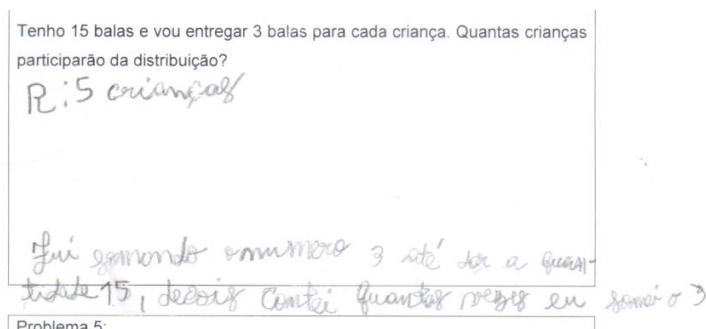 Tenho 15 balas e vou entregar 3 balas para cada criança. Quantas crianças
participarão da distribuição?
R: 5 crianças
Fui somando o numero 3 até dar a quan-
tidade 15, depois contei quantas vezes eu somei o 3
Problema 5: